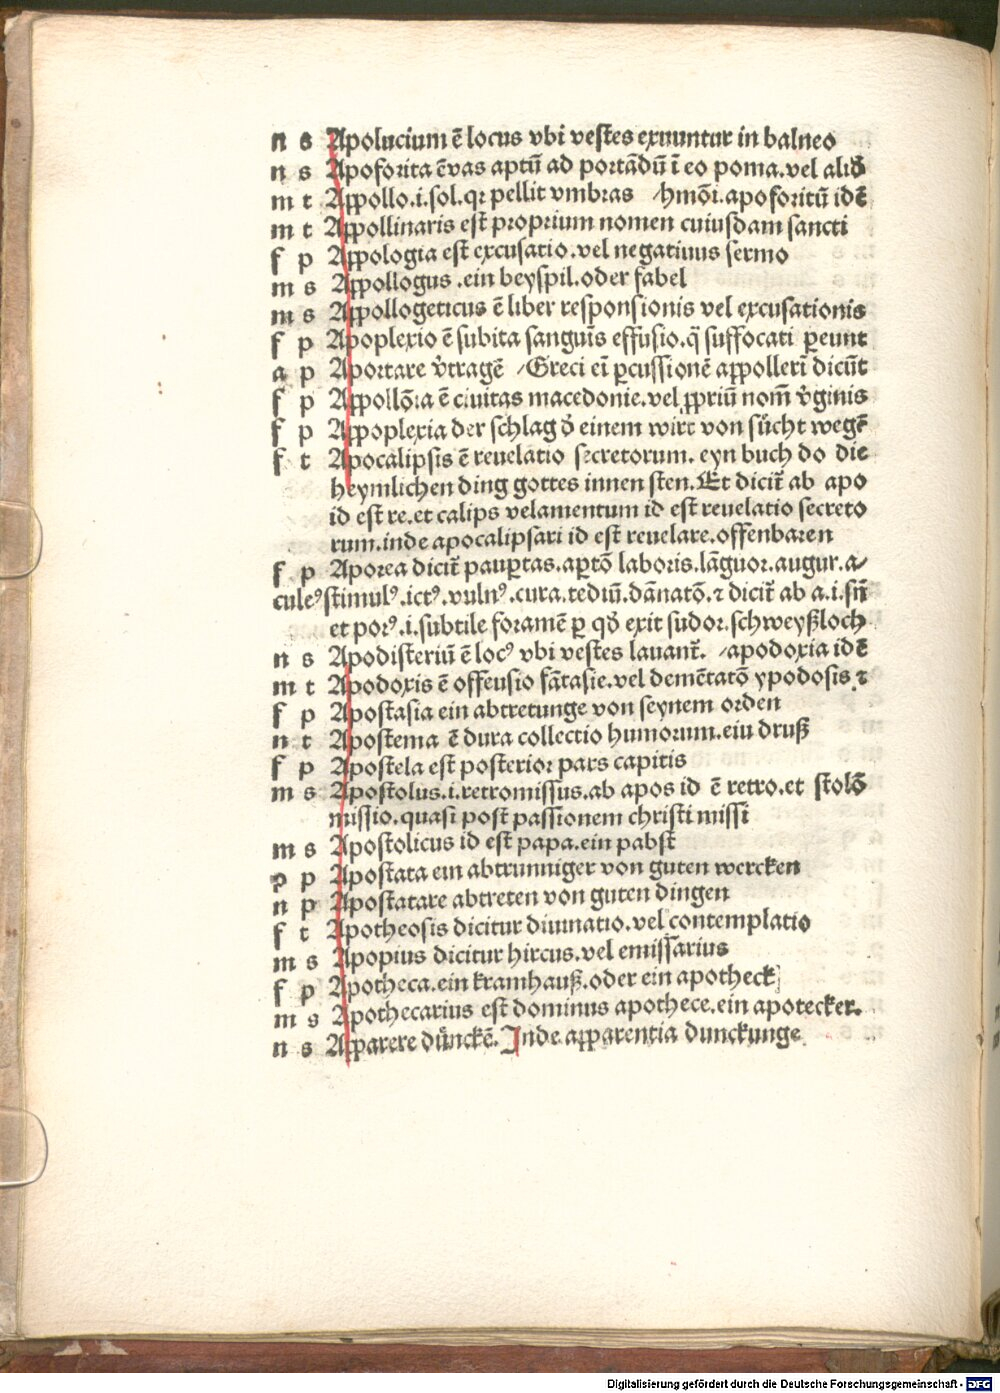 n s Apolucium ē locus vbi vestes exuuntur in balneo
n s Apoforita ēvas aptū ad portādū ī eo poma.vel alid̄
m t Appollo.i.sol.qr pellit vmbras /hmōi.apoforitū idē
m t Appollinaris est proprium nomen cuiusdam sancti
f p Appologia est excusatio.vel negatiuus sermo
m s Appollogus .ein beyspil.oder fabel
m s Appollogeticus ē liber responsionis vel excusationis
f p Apoplexio ē subita sanguīs effusio.q̄ suffocati ꝑeunt
a p Aportare v̓tragē /Greci eī ꝑcussionē appollerī dicūt
f p Appollōia ē ciuitas macedonie.vel ꝓpriū nom̄ v̓ginis
f p Appoplexia der schlag d̓ einem wirt von sücht wegē
f t Apocalipsis ē reuelatio secretorum. eyn buch do die
heymlichen ding gottes innen sten.Et dicit̄ ab apo
id est re.et calips velamentum id est reuelatio secreto
rum.inde apocalipsari id est reuelare.offenbaren
f p Aporea dicit̄ pauꝑtas.aꝑtō laboris.lāguor.augur.a/
culeꝰstimulꝰ.ictꝰ.vulnꝰ.cura.tediū.dānatō.⁊ dicit̄ ab a.i.sn̄
et porꝰ.i.subtile foramē ꝑ qd̓ exit sudor.schweyßloch
n s Apodisteriū ē locꝰ vbi vestes lauant̄. /apodoxia idē
m t Apodoxis ē offensio fātasie.vel demētatō ypodosis.⁊
f p Apostasia ein abtretunge von seynem orden
n t Apostema ē dura collectio humorum.ein druß
f p Apostela est posterior pars capitis
m s Apostolus.i.retromissus.ab apos id ē retro.et stolō
missio.quasi post passionem christi missi
m s Apostolicus id est papa.ein pabst
p p Apostata ein abtrunniger von guten wercken
n p Apostatare abtreten von guten dingen
f t Apotheosis dicitur diuinatio.vel contemplatio
m s Apopius dicitur hircus.vel emissarius
f p Apotheca.ein kramhauß.oder ein apotheck
m s Apothecarius est dominus apothece.ein apotecker.
n s Apparere dünckē. Inde apparentia dunckunge
Digitalisierung gefördert durch die Deutsche Forschungsgemeinschaft - DFG